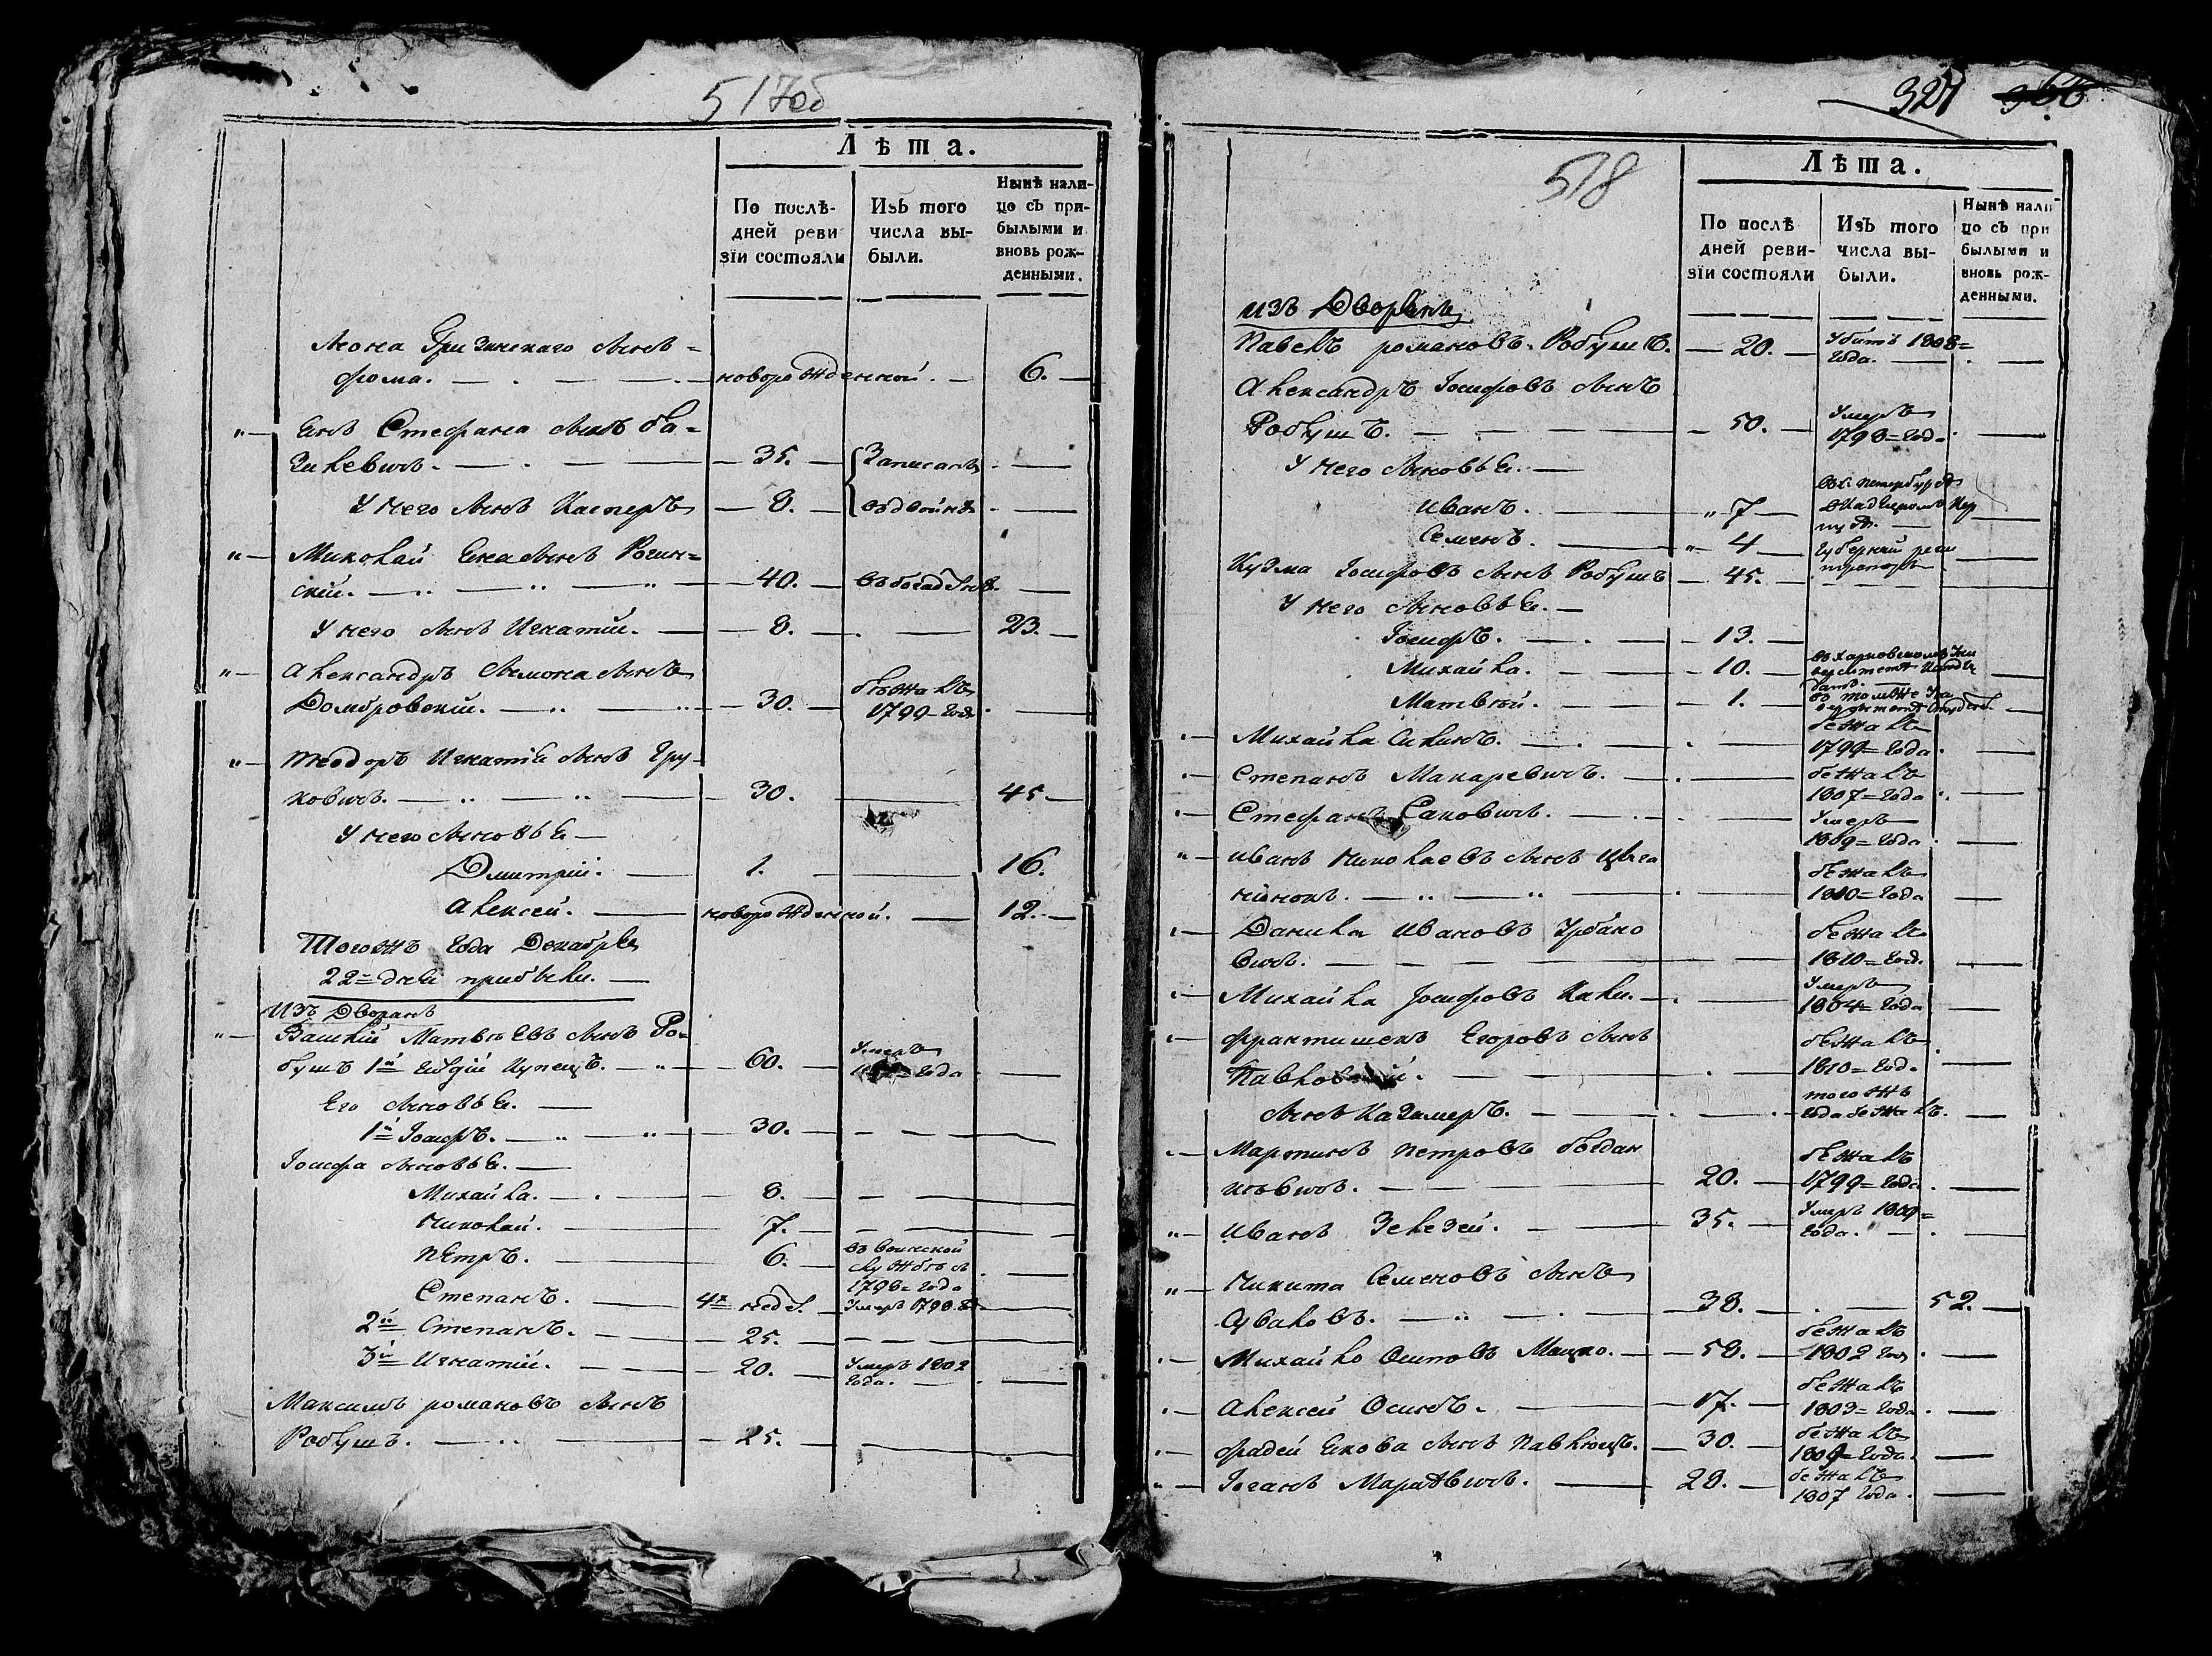 517об
Лѣта.
По послѣ-
дней реви
зіи состояли
Изъ того
числа вы-
были.
Нынѣ нали-
цо съ при-
былыми и
вновь рож-
денными.
Леона сынъ
фома. новорожденной. 6.
Янъ Стефана сынъ ба=
зилевичъ. 35. Записанъ
У него сынъ Касперъ 8. вдвойнѣ
Миколай Яна сынъ Рогин=
скій. 40. въ богадѣлнѣ.
У него сынъ Игнатій. 8. 23.
Александръ Сымона сынъ
Домбровскій. 30. бѣжалъ
1799 = года
теодоръ Игнатія сынъ Гру-
ковичъ. 30. 45
У него сыновья
Дмитрій. 1. 16.
Алексей. новорожденной. 12.
Тогожъ года Декабря
22 = дня прибыли.
Изъ Дворянъ
Василій Матвѣевъ сынъ Ро-
бушъ 1й гилдіи Купецъ. 60. Умеръ
года
Его сыновья.
1й Іосифъ. 30.
Іосифа сыновья.
Михайла. 8.
Николай. 7.
Петръ. 6. въ воинской
службѣ съ
1798 = года
Степанъ. 4х недел. Умеръ 1798.
2й Степанъ. 25.
3й Игнатій. 20. Умеръ 1802
года.
Максимъ романовъ сынъ
Робушъ. 25.
324
518
Лѣта.
По послѣ
дней реви-
зіи состояли
Изъ того
числа вы-
были.
Нынѣ нали
цо съ при
былыми и
вновь рож-
денными.
изъ Дворянъ
Павелъ романовъ Робушъ. 20. Убитъ 1808 =
года.
Александръ Іосифовъ сынъ
Робушъ. 50. Умеръ
1798 = года
У него сыновья.
Иванъ. 7
Семенъ. 4 Губернскій реги
страторъ
Кузма Іосифовъ сынъ Робушъ 45.
У него сыновья.
Іосифъ. 13.
Михайла. 10. въ харковскомъ Уни
верситетѣ
Матвѣй. 1. въ томъже Уни
верситетѣ
Михайла Силинъ. бежалъ
1799 = года
Степанъ Макаревичъ. бежалъ
1807 = года
Стефанъ Саковичъ. Умеръ
1809 = года
иванъ николаевъ сынъ Цыга
нёнокъ. бежалъ
1810 = года
Данила Ивановъ Урбано
вичъ. бежалъ
1810 = года
Михайла Іосифовъ Умеръ
1804 = года
Францишекъ Егоровъ сынъ
Павловскій. бежалъ
1810 = года
Сынъ Казимеръ. тогожъ
года бежалъ.
Мартинъ петровъ богдан
ковичъ. 20. бежалъ
1799 = года
Иванъ Зелезей. 35. Умеръ 1809 =
года.
Никита Семеновъ сынъ
Суваловъ. 38. 52.
Михайло Осиповъ Мацко. 58. бежалъ
1802 года
Алексей Осинъ. 17. бежалъ
1803 = года
фадей Якова сынъ Павлюцъ. 30. бежалъ
1809 = года
Іоганъ 28. бежалъ
1807 года